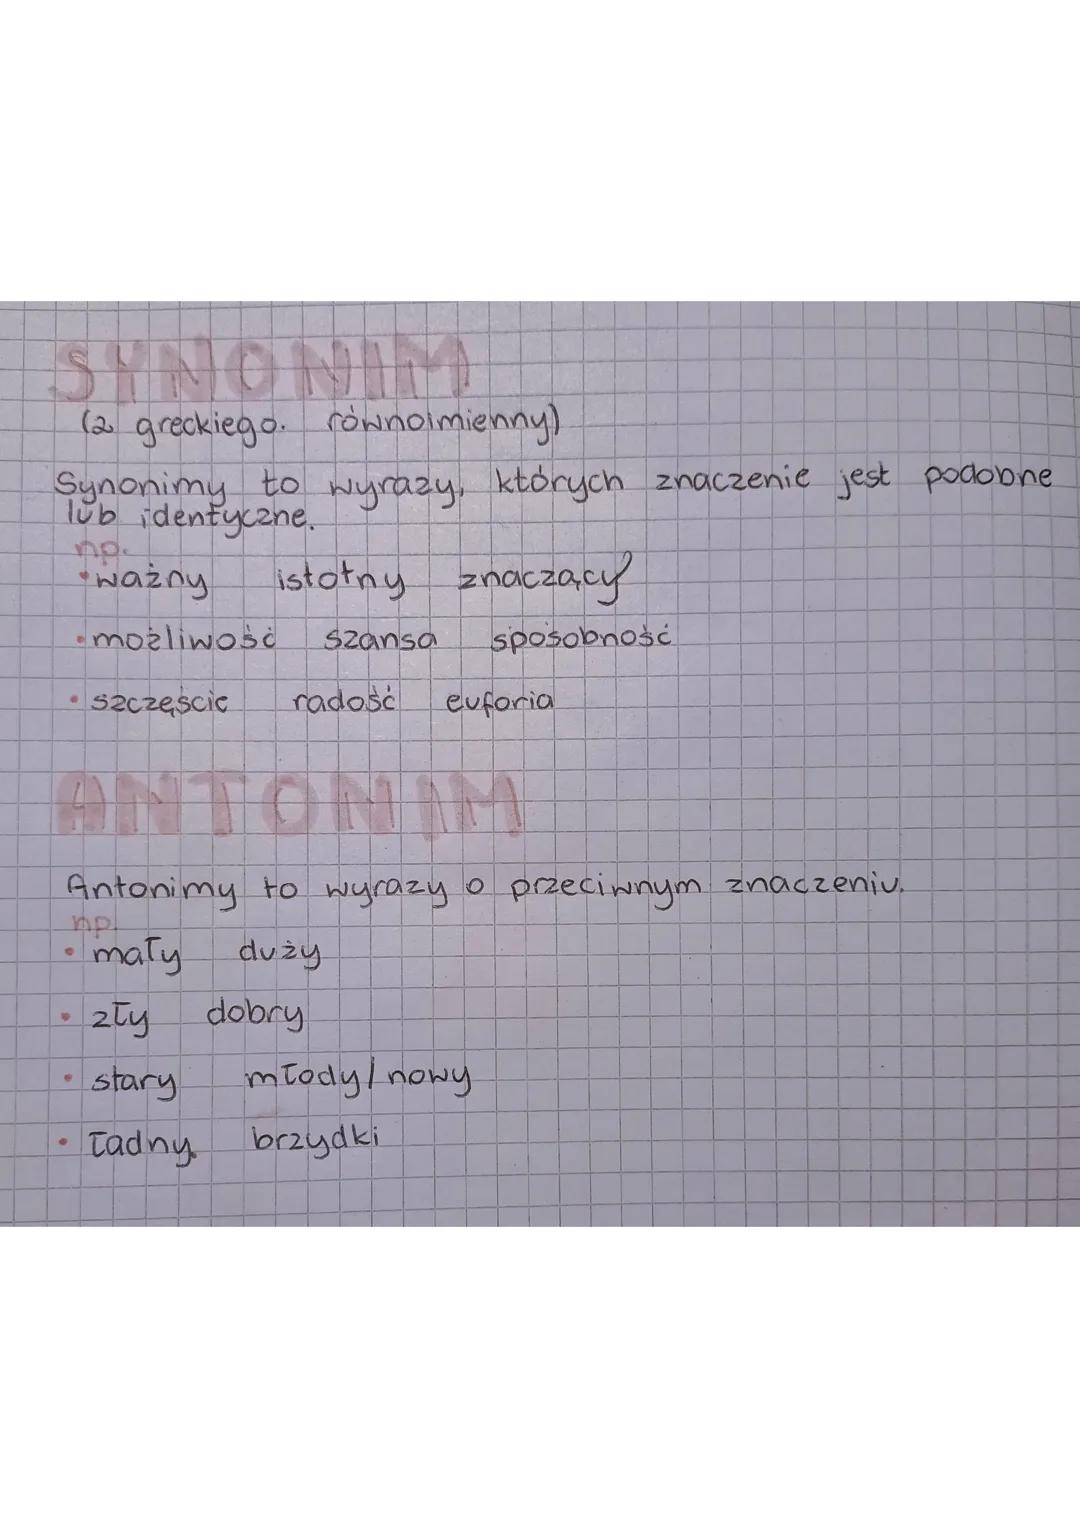 SYNONIM
(z greckiego. równoimienny)
Synonimy to wyrazy, których znaczenie jest podobne
lub identyczne.
np.
• ważny istotny znaczący
• możliwość szansa sposobność
• szczęście radość euforia
ANTONIM
Antonimy to wyrazy o przeciwnym znaczeniu.
np.
• mały duży
• zły dobry
• stary młody/nowy
• ładny brzydki